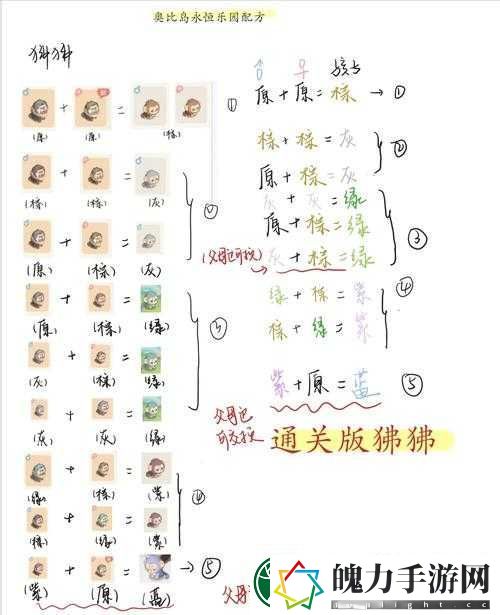 奥比岛永恒乐园配方
狒狒
+ = ①
(原) (原) (棕)
+ =
(棕) (棕) (灰)
②
+ =
(原) (棕) (灰)
+ =
(原) (棕) (绿)
+ =
(灰) (棕) (绿)
③
+ =
(灰) (灰) (绿)
+ =
(绿) (棕) (紫)
④
+ =
(棕) (绿) (紫)
+ = → ⑤
(紫) (原) (蓝)
♂ ♀ 孩子
原 + 原 = 棕 → ①
棕 + 棕 = 灰
②
原 + 棕 = 灰
灰 + 灰 = 绿
原 + 棕 = 绿
③
(父母已可换) 灰 + 棕 = 绿
绿 + 棕 = 紫
④
棕 + 绿 = 紫
紫 + 原 = 蓝 ⑤
父母已
可交换
通关版狒狒
父母
魄力手游网